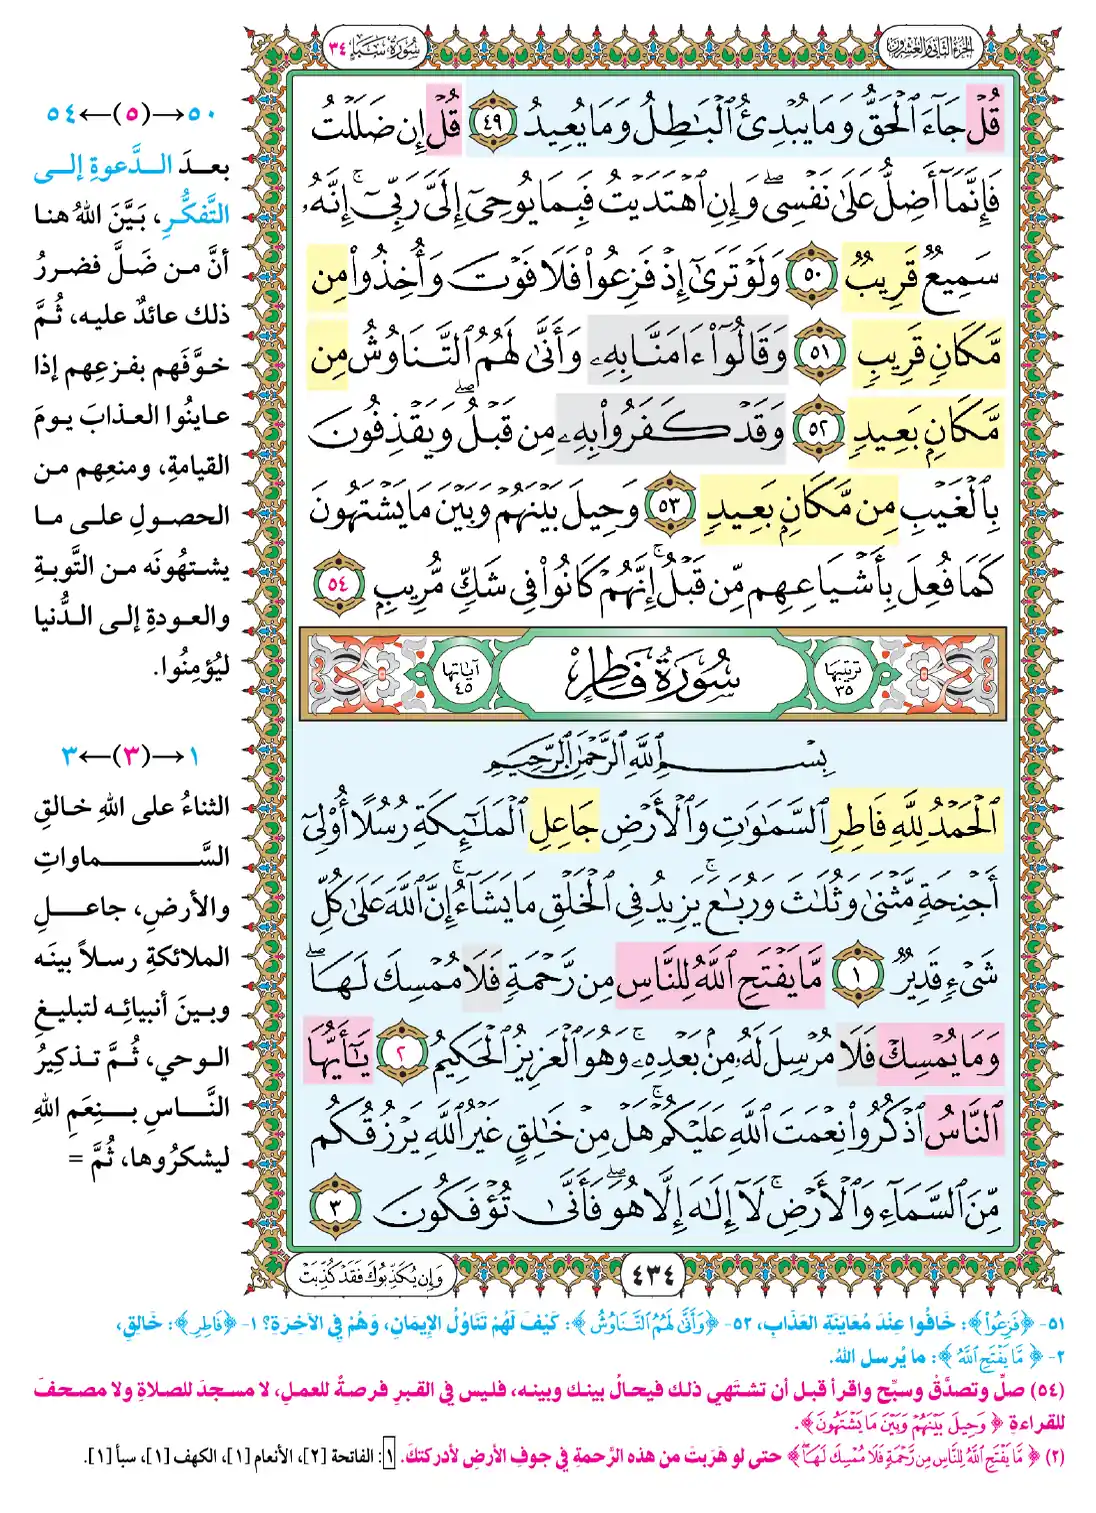 الجزء الثاني والعشرون
سورة سبإ ٣٤
قُلْ جَآءَ ٱلْحَقُّ وَمَا يُبْدِئُ ٱلْبَٰطِلُ وَمَا يُعِيدُ ٤٩ قُلْ إِن ضَلَلْتُ
فَإِنَّمَآ أَضِلُّ عَلَىٰ نَفْسِى ۖ وَإِنِ ٱهْتَدَيْتُ فَبِمَا يُوحِىٓ إِلَىَّ رَبِّىٓ ۚ إِنَّهُۥ
سَمِيعٌ قَرِيبٌ ٥٠ وَلَوْ تَرَىٰٓ إِذْ فَزِعُوا۟ فَلَا فَوْتَ وَأُخِذُوا۟ مِن
مَّكَانٍ قَرِيبٍ ٥١ وَقَالُوٓا۟ ءَامَنَّا بِهِۦ وَأَنَّىٰ لَهُمُ ٱلتَّنَاوُشُ مِن
مَّكَانٍۭ بَعِيدٍ ٥٢ وَقَدْ كَفَرُوا۟ بِهِۦ مِن قَبْلُ ۖ وَيَقْذِفُونَ
بِٱلْغَيْبِ مِن مَّكَانٍۭ بَعِيدٍ ٥٣ وَحِيلَ بَيْنَهُمْ وَبَيْنَ مَا يَشْتَهُونَ
كَمَا فُعِلَ بِأَشْيَاعِهِم مِّن قَبْلُ ۚ إِنَّهُمْ كَانُوا۟ فِى شَكٍّ مُّرِيبٍۭ ٥٤
ترتيبها ٣٥
سُورَةُ فَاطِرٍ
آياتها ٤٥
بِسْمِ ٱللَّهِ ٱلرَّحْمَٰنِ ٱلرَّحِيمِ
ٱلْحَمْدُ لِلَّهِ فَاطِرِ ٱلسَّمَٰوَٰتِ وَٱلْأَرْضِ جَاعِلِ ٱلْمَلَٰٓئِكَةِ رُسُلًا أُو۟لِىٓ
أَجْنِحَةٍ مَّثْنَىٰ وَثُلَٰثَ وَرُبَٰعَ ۚ يَزِيدُ فِى ٱلْخَلْقِ مَا يَشَآءُ ۚ إِنَّ ٱللَّهَ عَلَىٰ كُلِّ
شَىْءٍ قَدِيرٌ ١ مَّا يَفْتَحِ ٱللَّهُ لِلنَّاسِ مِن رَّحْمَةٍ فَلَا مُمْسِكَ لَهَا ۖ
وَمَا يُمْسِكْ فَلَا مُرْسِلَ لَهُۥ مِنۢ بَعْدِهِۦ ۚ وَهُوَ ٱلْعَزِيزُ ٱلْحَكِيمُ ٢ يَٰٓأَيُّهَا
ٱلنَّاسُ ٱذْكُرُوا۟ نِعْمَتَ ٱللَّهِ عَلَيْكُمْ ۚ هَلْ مِنْ خَٰلِقٍ غَيْرُ ٱللَّهِ يَرْزُقُكُم
مِّنَ ٱلسَّمَآءِ وَٱلْأَرْضِ ۚ لَآ إِلَٰهَ إِلَّا هُوَ ۖ فَأَنَّىٰ تُؤْفَكُونَ ٣
٤٣٤
وَإِن يُكَذِّبُوكَ فَقَدْ كُذِّبَتْ
٥٠→(٥)←٥٤
بعدَ الدَّعوةِ إلى
التَّفكُّرِ، بَيَّنَ اللهُ هنا
أنَّ من ضَلَّ فضررُ
ذلك عائدٌ عليه، ثُمَّ
خوَّفَهم بفزعِهم إذا
عاينُوا العذابَ يومَ
القيامةِ، ومنعِهم من
الحصولِ على ما
يشتهُونَه من التَّوبةِ
والعودةِ إلى الدُّنيا
ليُؤمِنُوا.
١→(٣)←٣
الثناءُ على اللهِ خالقِ
السَّماواتِ
والأرضِ، جاعلِ
الملائكةِ رسلاً بينَه
وبينَ أنبيائِه لتبليغِ
الوحي، ثُمَّ تذكيرُ
النَّاسِ بنِعَمِ اللهِ
ليشكرُوها، ثُمَّ =
٥١- ﴿فَزِعُوا۟﴾: خَافُوا عِنْدَ مُعَايَنَةِ العَذَابِ، ٥٢- ﴿وَأَنَّىٰ لَهُمُ ٱلتَّنَاوُشُ﴾: كَيْفَ لَهُمْ تَنَاوُلُ الإِيمَانِ، وَهُمْ فِي الآخِرَةِ؟ ١- ﴿فَاطِرِ﴾: خَالِقِ،
٢- ﴿مَّا يَفْتَحِ ٱللَّهُ﴾: ما يُرسل اللهُ.
(٥٤) صلِّ وتصدَّقْ وسبِّح واقرأ قبل أن تشتَهي ذلك فيحالُ بينك وبينه، فليس في القبرِ فرصةٌ للعملِ، لا مسجدَ للصلاةِ ولا مصحفَ
للقراءةِ ﴿وَحِيلَ بَيْنَهُمْ وَبَيْنَ مَا يَشْتَهُونَ﴾.
(٢) ﴿مَّا يَفْتَحِ ٱللَّهُ لِلنَّاسِ مِن رَّحْمَةٍ فَلَا مُمْسِكَ لَهَا﴾ حتى لو هَرَبتَ من هذه الرَّحمةِ في جوفِ الأرضِ لأدركتكَ. ١: الفاتحة [٢]، الأنعام [١]، الكهف [١]، سبأ [١].